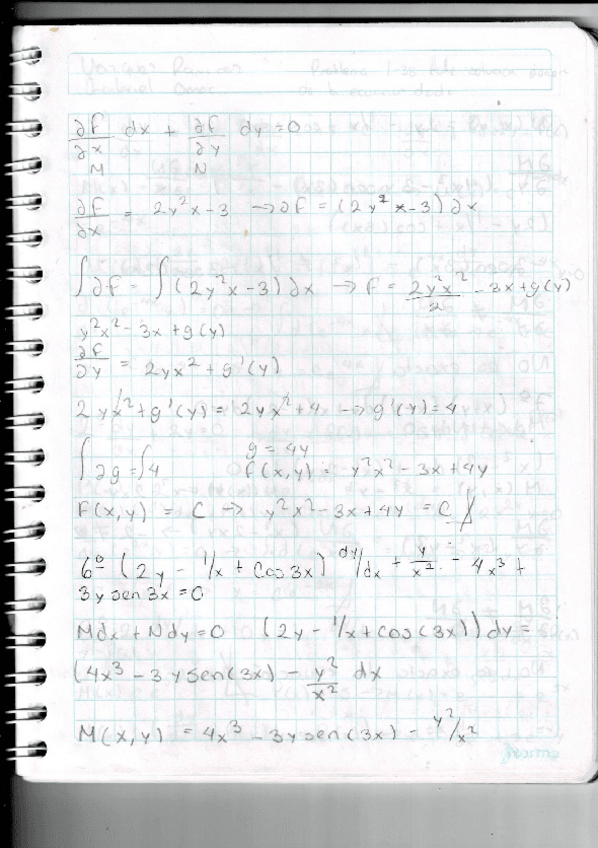 Vazquez Ramirez Problema 1-30
∂F/∂x dx + ∂F/∂y dy = 0
M N
∂F/∂x = 2y²x-3 → ∂F = (2y²x-3)∂x
∫∂F = ∫(2y²x-3)∂x → F = 2y²x²/2 - 3x+g(y)
y²x² - 3x + g(y)
∂F/∂y = 2yx² + g'(y)
2yx² + g'(y) = 2yx² + 4 → g'(y) = 4
∫∂g = ∫4 g = 4y
F(x,y) = y²x² - 3x + 4y
F(x,y) = C → y²x² - 3x + 4y = C
6º (2y - 1/x + cos 3x) dy/dx + y/x² - 4x³ +
3y sen 3x = 0
Mdx + Ndy = 0 (2y - 1/x + cos(3x)) dy =
(4x³ - 3y sen(3x) - y²/x² dx
M(x,y) = 4x³ - 3y sen(3x) - y²/x²